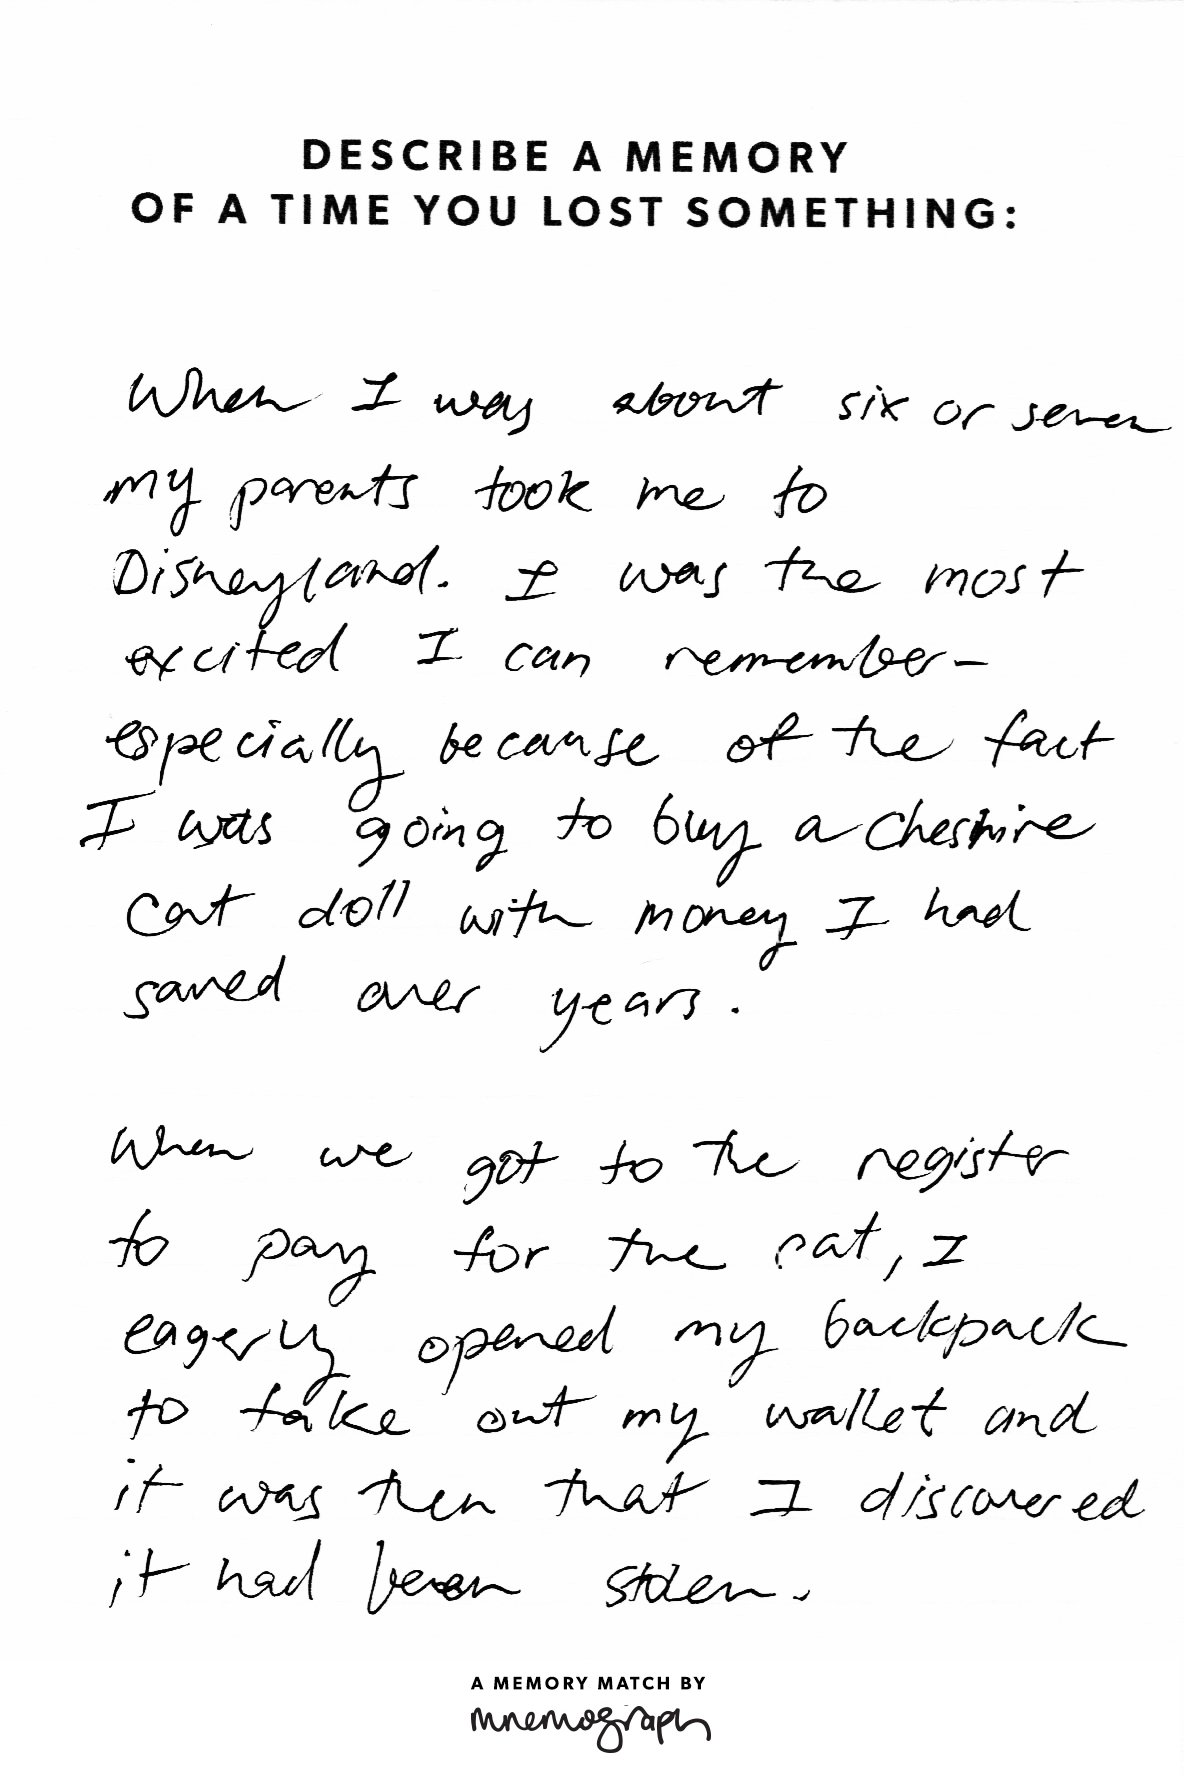 DESCRIBE A MEMORY
OF A TIME YOU LOST SOMETHING:
When I was about six or seven
my parents took me to
Disneyland. I was the most
excited I can remember—
especially because of the fact
I was going to buy a Cheshire
Cat doll with money I had
saved over years.
When we got to the register
to pay for the cat, I
eagerly opened my backpack
to take out my wallet and
it was then that I discovered
it had been stolen.
A MEMORY MATCH BY
mnemograph